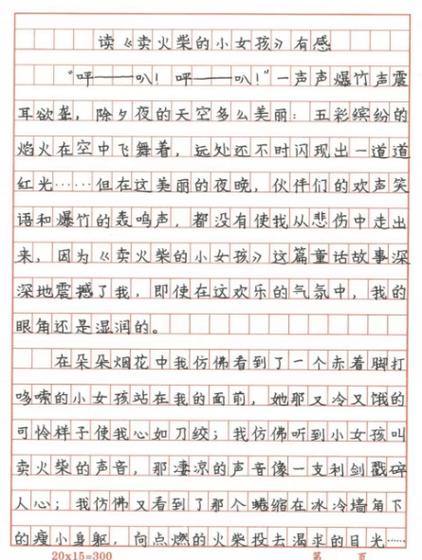 读《卖火柴的小女孩》有感
“呯——叭！呯——叭！”一声声爆竹声震
耳欲聋，除夕夜的天空多么美丽：五彩缤纷的
焰火在空中飞舞着，远处还不时闪现出一道道
红光……但在这美丽的夜晚，伙伴们的欢声笑
语和爆竹的轰鸣声，都没有使我从悲伤中走出
来，因为《卖火柴的小女孩》这篇童话故事深
深地震撼了我，即使在这欢乐的气氛中，我的
眼角还是湿润的。
在朵朵烟花中我仿佛看到了一个赤着脚打
哆嗦的小女孩站在我的面前，她那又冷又饿的
可怜样子使我心如刀绞；我仿佛听到小女孩叫
卖火柴的声音，那凄凉的声音像一支利剑戳碎
人心；我仿佛又看到了那个蜷缩在冰冷墙角下
的瘦小身躯，向点燃的火柴投去渴求的目光……
20x15=300 第 页